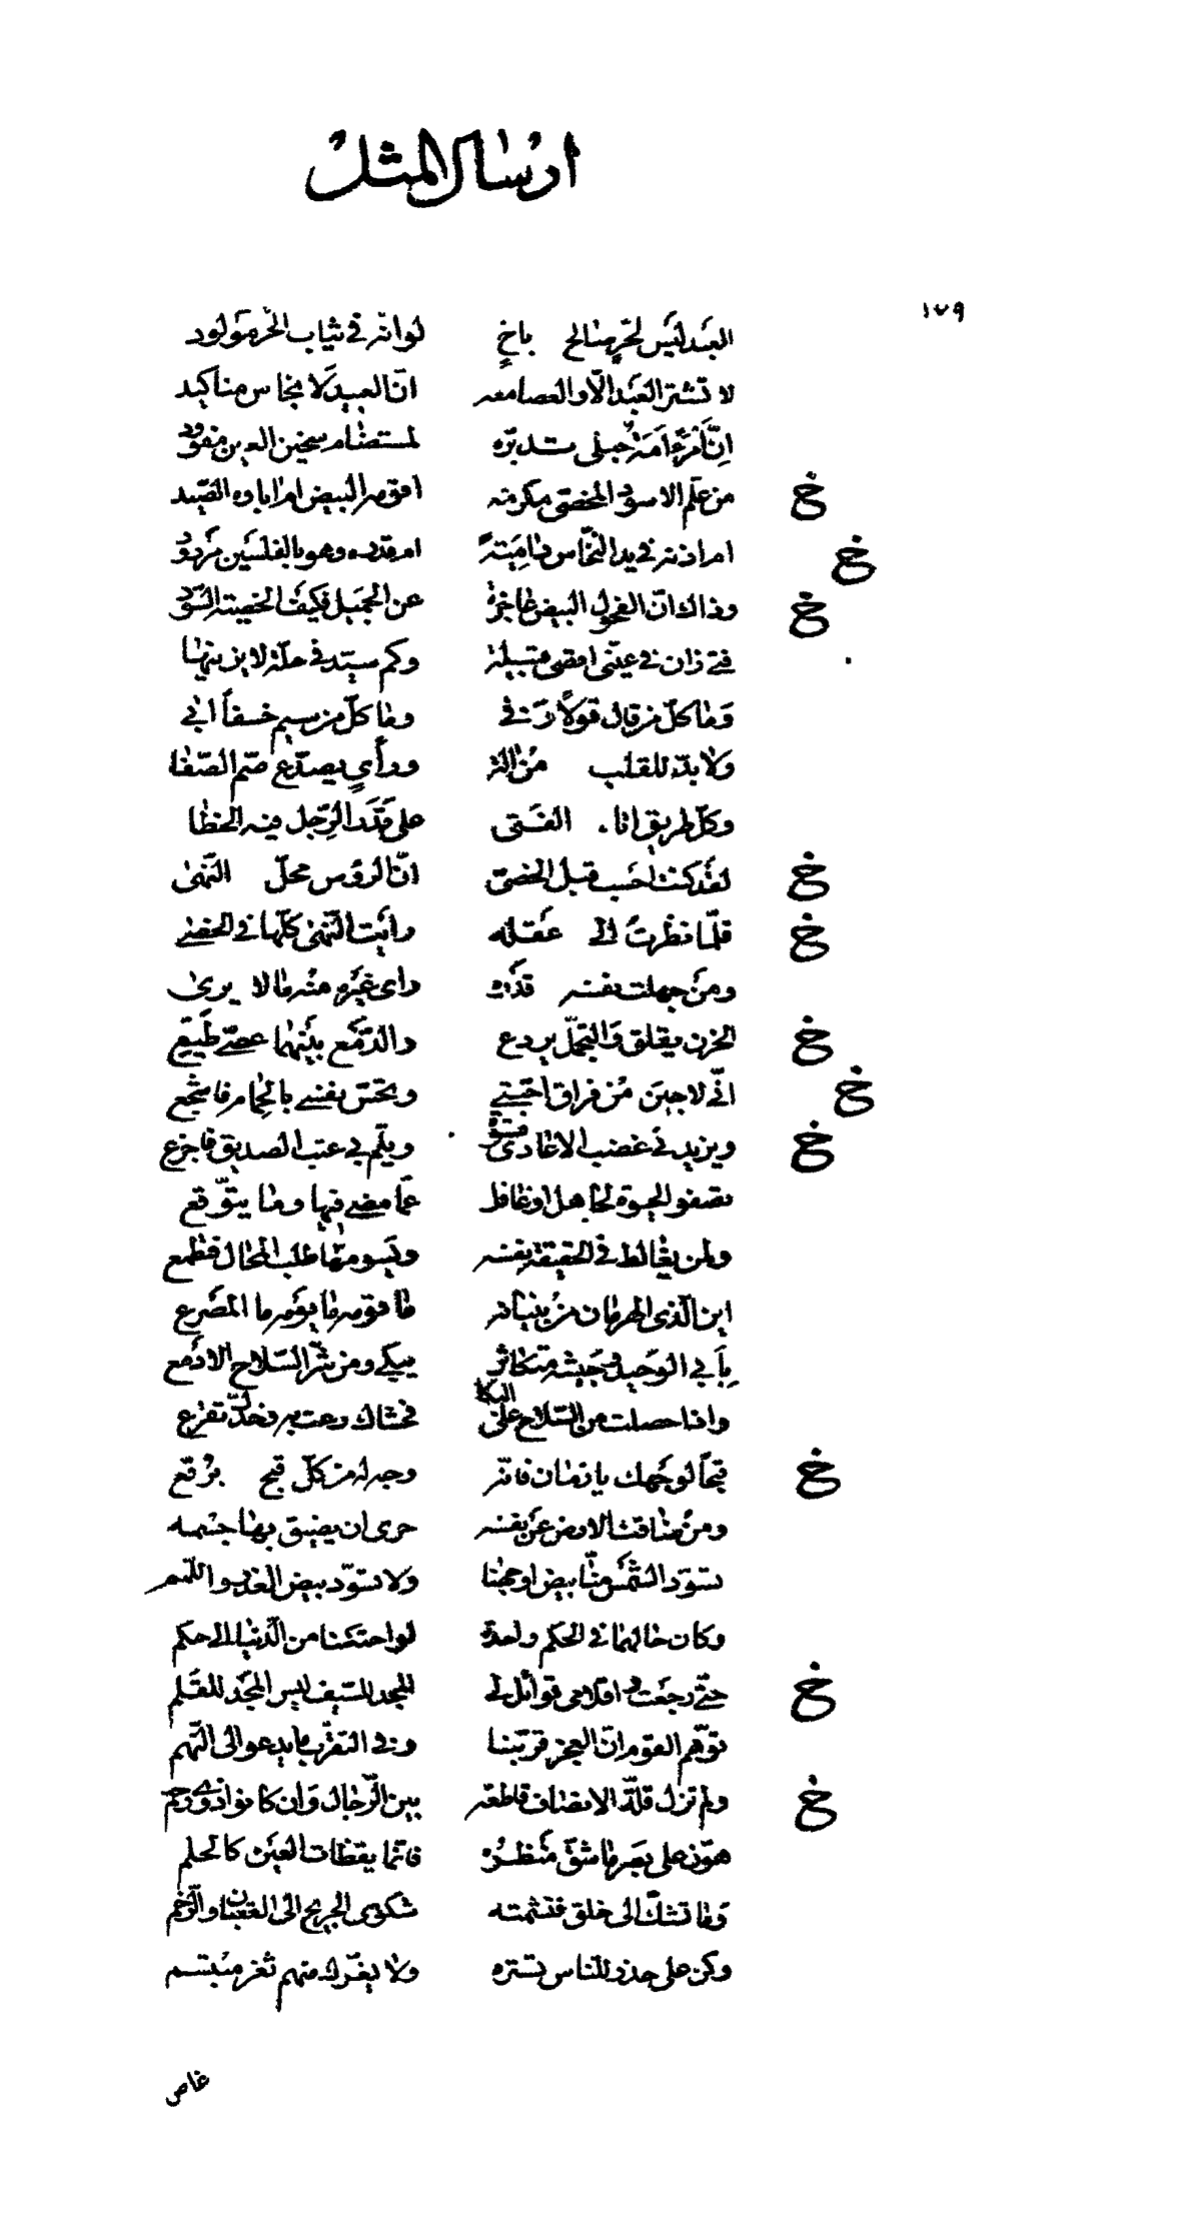 ارسال المثل
١٧٩
العبد ليس لحرّ صالح باخٍ لو انه في ثياب الحر مولود
لا تشتر العبد الّا والعصا معه انّ العبيد لانجاس مناكيد
انّ امرءًا امة حبلى تدبّره لمستضام سخين العين مفؤد
خ من علّم الاسود المخصي مكرمة اقومه البيض ام اباوه الصّيد
خ ام اذنه في يد النخّاس داميةً ام قدره وهو بالفلسين مردود
خ وذاك انّ الفحول البيض عاجزة عن الجميل فكيف الخصية السّود
فتى زان في عينيّ اقصى قبيله وكم سيّد في حلّة لا يزينها
وما كلّ من قال قولاً وفى وما كلّ من سيم خسفاً ابى
ولا بدّ للقلب من الة ورأيٍ يصدّع صمّ الصّفا
وكلّ طريق اتاه الفتى على قدر الرّجل فيه الخطا
خ لقد كنت احسب قبل الخصيّ انّ الرؤس محلّ النّهى
خ فلمّا نظرت الى عقله رايت النّهى كلّها في الخصى
ومن جهلت نفسه قدره راى غيره منه ما لا يرى
خ الحزن يقلق والتجمّل يردع والدّمع بينهما عصيّ طيّع
خ انّي لاجبن من فراق احبّتي وتحسّ نفسي بالحمام فاشجع
خ ويزيدني غضب الاعادي قسوة ويلمّ بي عتب الصديق فاجزع
تصفو الحيوة لجاهل او غافل عمّا مضى فيها وما يتوقّع
ولمن يغالط في الحقيقة نفسه ويسومها طلب المحال فتطمع
اين الّذي الهرمان من بنيانه ما قومه ما يومه ما المصرع
بأبي الوحيد وجيشه متكاثر يبكي ومن شرّ السّلاح الادمع
واذا حصلت من السّلاح على البكا فحشاك رعت به وخدّك تقرع
خ قبحاً لوجهك يا زمان فانّه وجه له من كلّ قبح برقع
ومن ضاقت الارض عن نفسه حرى ان يضيق بها جسمه
تسوّد الشّمس منّا بيض اوجهنا ولا تسوّد بيض العذر واللّمم
وكان حالهما في الحكم واحدة لو احتكمنا من الدّنيا الى حكم
خ حتّى رجعت واقلامي قوائل لي المجد للسّيف ليس المجد للقلم
توهّم القوم انّ العجز قرّبنا وفي التقرّب ما يدعو الى التّهم
خ ولم تزل قلّة الانصاف قاطعة بين الرّجال وان كانوا ذوي رحم
هوّن على بصر ما شقّ منظره فانّما يقظات العين كالحلم
وما تشكّ الى خلق فتشمته شكوى الجريح الى الغربان والرّخم
وكن على حذر للناس تستره ولا يغرّك منهم ثغر مبتسم
غاص